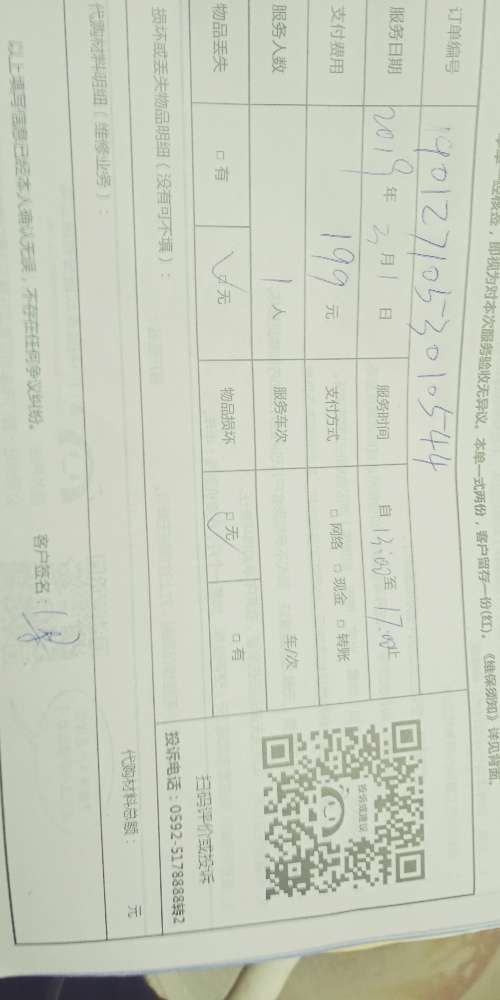 验收，即视为对本次服务验收无异议。本单一式两份，客户留存一份(红)。《维保须知》详见背面。
订单编号 1901271053010544
服务日期 2019年2月1日 服务时间 自13:00至17:00止
支付费用 199元 支付方式 □网络 □现金 □转账
服务人数 1人 服务车次 车/次
物品丢失 □有 □无 物品损坏 □无 □有
按诉或建议
扫码评价或投诉
投诉电话：0592-5178888转2
损坏或丢失物品明细（没有可不填）：
代购材料明细（维修业务）：
代购材料总额： 元
以上填写信息已经本人确认无误，不存在任何争议纠纷。
客户签名：